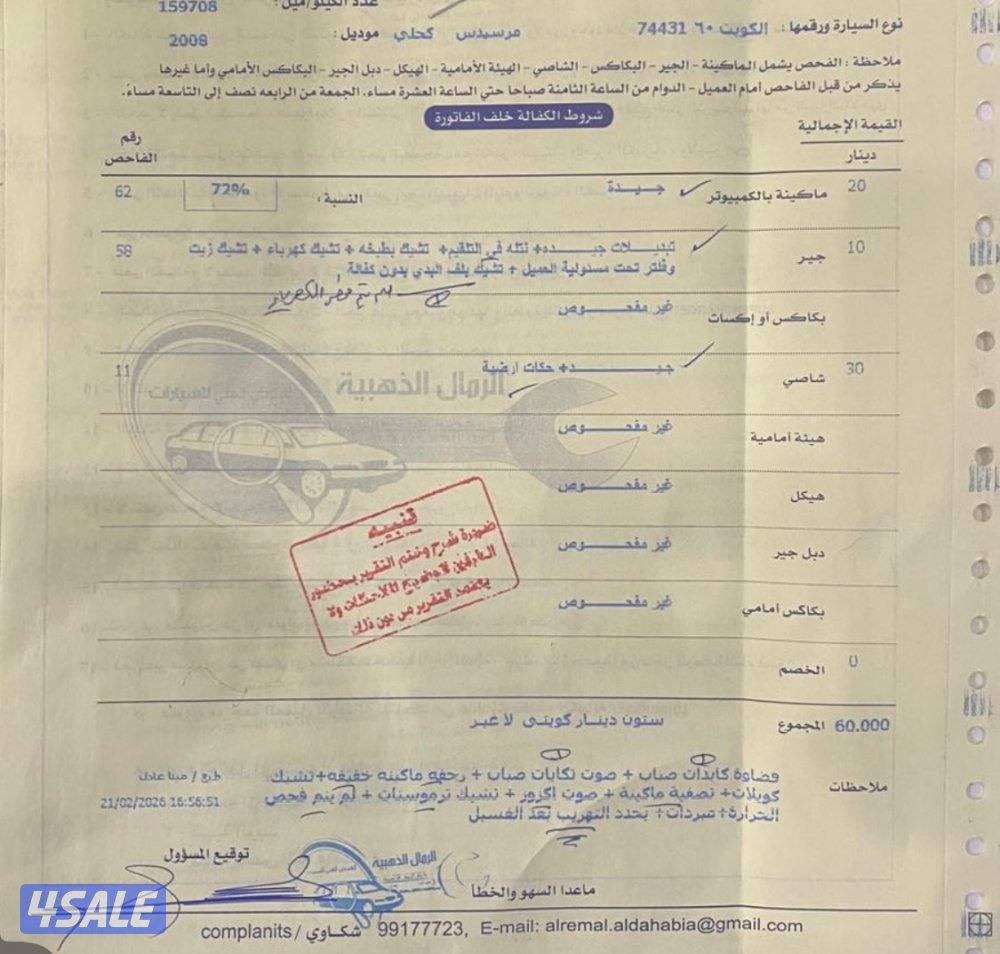 عدد الكيلو/ميل : 159708
نوع السيارة ورقمها : الكويت ٦٠ 74431 مرسيدس كحلي موديل : 2008
ملاحظة : الفحص يشمل الماكينة - الجير - البكاكس - الشاصي - الهيئة الأمامية - الهيكل - دبل الجير - البكاكس الأمامي وأما غيرها
يذكر من قبل الفاحص أمام العميل - الدوام من الساعة الثامنة صباحا حتي الساعة العشرة مساء. الجمعة من الرابعه نصف إلى التاسعة مساء.
شروط الكفالة خلف الفاتورة
القيمة الإجمالية
دينار
رقم
الفاحص
20 ماكينة بالكمبيوتر جيــدة النسبة : 72% 62
10 جير تبديـلات جيــده+ نتله في التلقيم+ تشيك بطيخه + تشيك كهرباء + تشيك زيت 58
وفلتر تحت مسئولية العميل + تشيك بلف البدي بدون كفالة
لم يتم فحص الكهرباء
بكاكس أو إكسات غير مفحــوص
30 شاصي جيــد+ حكات ارضية 11
الرمال الذهبية
هيئة أمامية غير مفحــوص
هيكل غير مفحــوص
دبل جير غير مفحــوص
بكاكس أمامي غير مفحــوص
تنبيه
ضرورة شرح وختم التقرير بحضور
الطرفين لتوضيح الملاحظات ولا
يعتمد التقرير من دون ذلك
0 الخصم
60.000 المجموع ستون دينار كويتى لا غير
ملاحظات
فضاوة كابدات صباب + صوت تكايات صباب + رجفه ماكينه خفيفه+ تشيك
كويلات+ تصفية ماكينة + صوت اكزوز + تشيك ثرموستات + لم يتم فحص
الحرارة+ مبردات+ يحدد التهريب بعد الغسيل
طبع / مينا عادل
21/02/2026 16:56:51
توقيع المسؤول
الرمال الذهبية
ماعدا السهو والخطأ
4SALE
complanits / شكاوي 99177723, E-mail: alremal.aldahabia@gmail.com